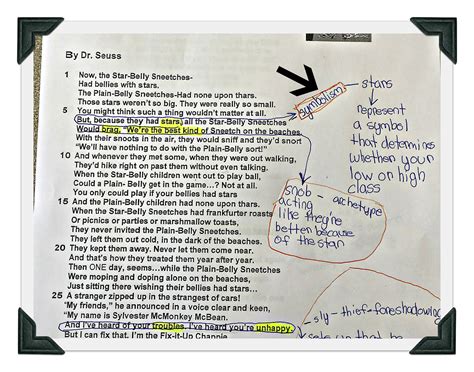 By Dr. Seuss
1 Now, the Star-Belly Sneetches-
Had bellies with stars.
The Plain-Belly Sneetches-Had none upon thars.
Those stars weren't so big. They were really so small.
5 You might think such a thing wouldn't matter at all.
But, because they had stars, all the Star-Belly Sneetches
Would brag, "We're the best kind of Sneetch on the beaches."
With their snoots in the air, they would sniff and they'd snort
"We'll have nothing to do with the Plain-Belly sort!"
10 And whenever they met some, when they were out walking,
They'd hike right on past them without even talking.
When the Star-Belly children went out to play ball,
Could a Plain-Belly get in the game…? Not at all.
You only could play if your bellies had stars
15 And the Plain-Belly children had none upon thars.
When the Star-Belly Sneetches had frankfurter roasts
Or picnics or parties or marshmallow toasts,
They never invited the Plain-Belly Sneetches.
They left them out cold, in the dark of the beaches.
20 They kept them away. Never let them come near.
And that's how they treated them year after year.
Then ONE day, seems…while the Plain-Belly Sneetches
Were moping and doping alone on the beaches,
Just sitting there wishing their bellies had stars…
25 A stranger zipped up in the strangest of cars!
"My friends," he announced in a voice clear and keen,
"My name is Sylvester McMonkey McBean.
And I've heard of your troubles. I've heard you're unhappy.
But I can fix that. I'm the Fix-it-Up Chappie
symbolism
stars
represent
a symbol
that determines
whether your
low or high
class
snob - archetype
acting
like they're
better because
of the star
sly - thief-foreshadowing